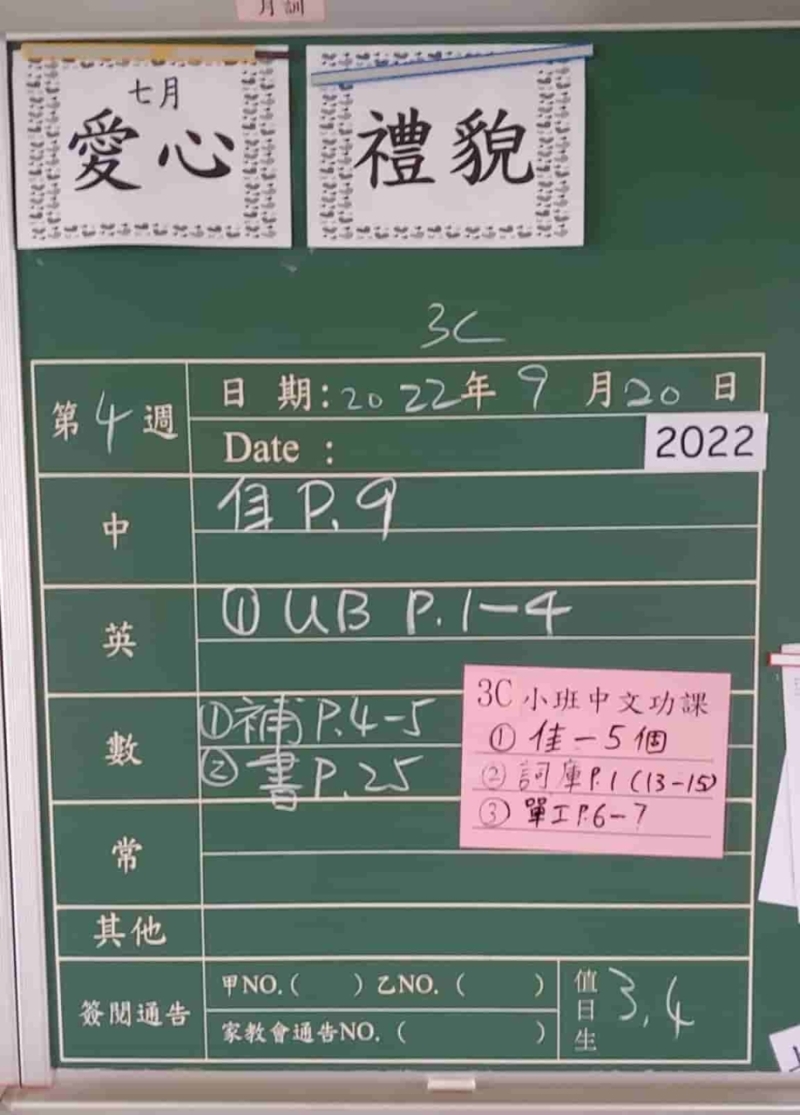 月訓
七月
愛心
禮貌
3C
第4週
日 期：2022年 9 月 20 日
Date :
2022
中
佳 P.9
英
① UB P.1-4
數
①補 P.4-5
②書 P.25
3C 小班中文功課
① 佳-5個
② 詞庫 P.1 (13-15)
③ 單工 P.6-7
常
其他
簽閱通告
甲NO.( ) 乙NO. ( )
家教會通告NO. ( )
值日生
3,4